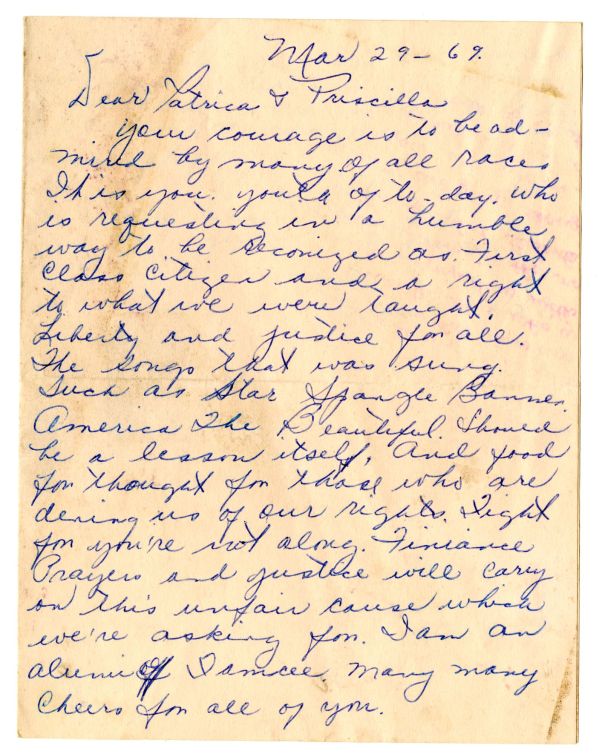 Mar 29-69.
Dear Patrica & Priscilla
Your courage is to be ad-
mired by many of all races
It is you. youth of to-day. Who
is requesting in a humble
way to be reconized as. First
Class Citizen and a right
to what we were taught.
Liberty and justice for all.
The songs that was sung.
Such as Star Spangle Banner.
America The Beautiful. Should
be a lesson itself, And food
for thought for those who are
dening us of our rights. Fight
for you're not along. Finiance
Prayers and justice will carry
on this unfair cause which
we're asking for. I am an
alumi of Famcee. Many many
Cheers for all of you.